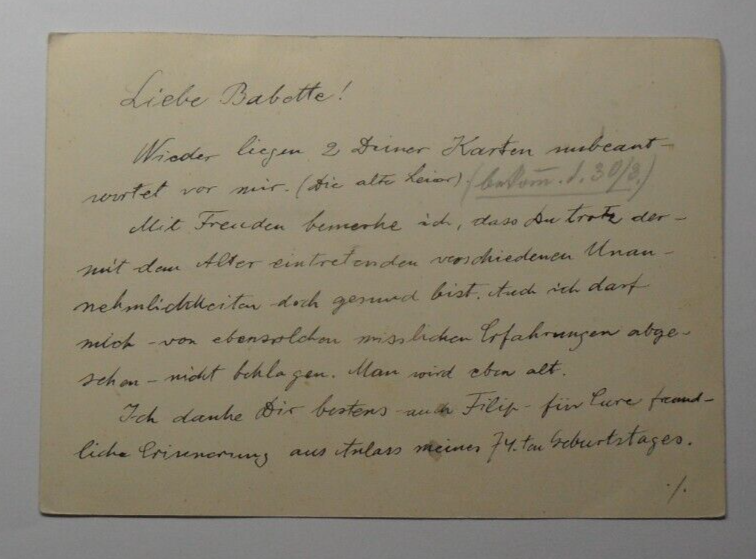 Liebe Babette!
Wieder liegen 2 Deiner Karten unbeant-
wortet vor mir. (Die alte Leier) (bekom̅. d. 30/8.)
Mit Freuden bemerke ich, dass Du trotz der -
mit dem Alter eintretenden verschiedenen Unan-
nehmlichkeiten - doch gesund bist. Auch ich darf
mich - von ebensolchen misslichen Erfahrungen abge-
sehen - nicht beklagen. Man wird eben alt.
Ich danke Dir bestens - auch Filip - für Eure freund-
liche Erinnerung aus Anlass meines 74.ten Geburtstages.
./.